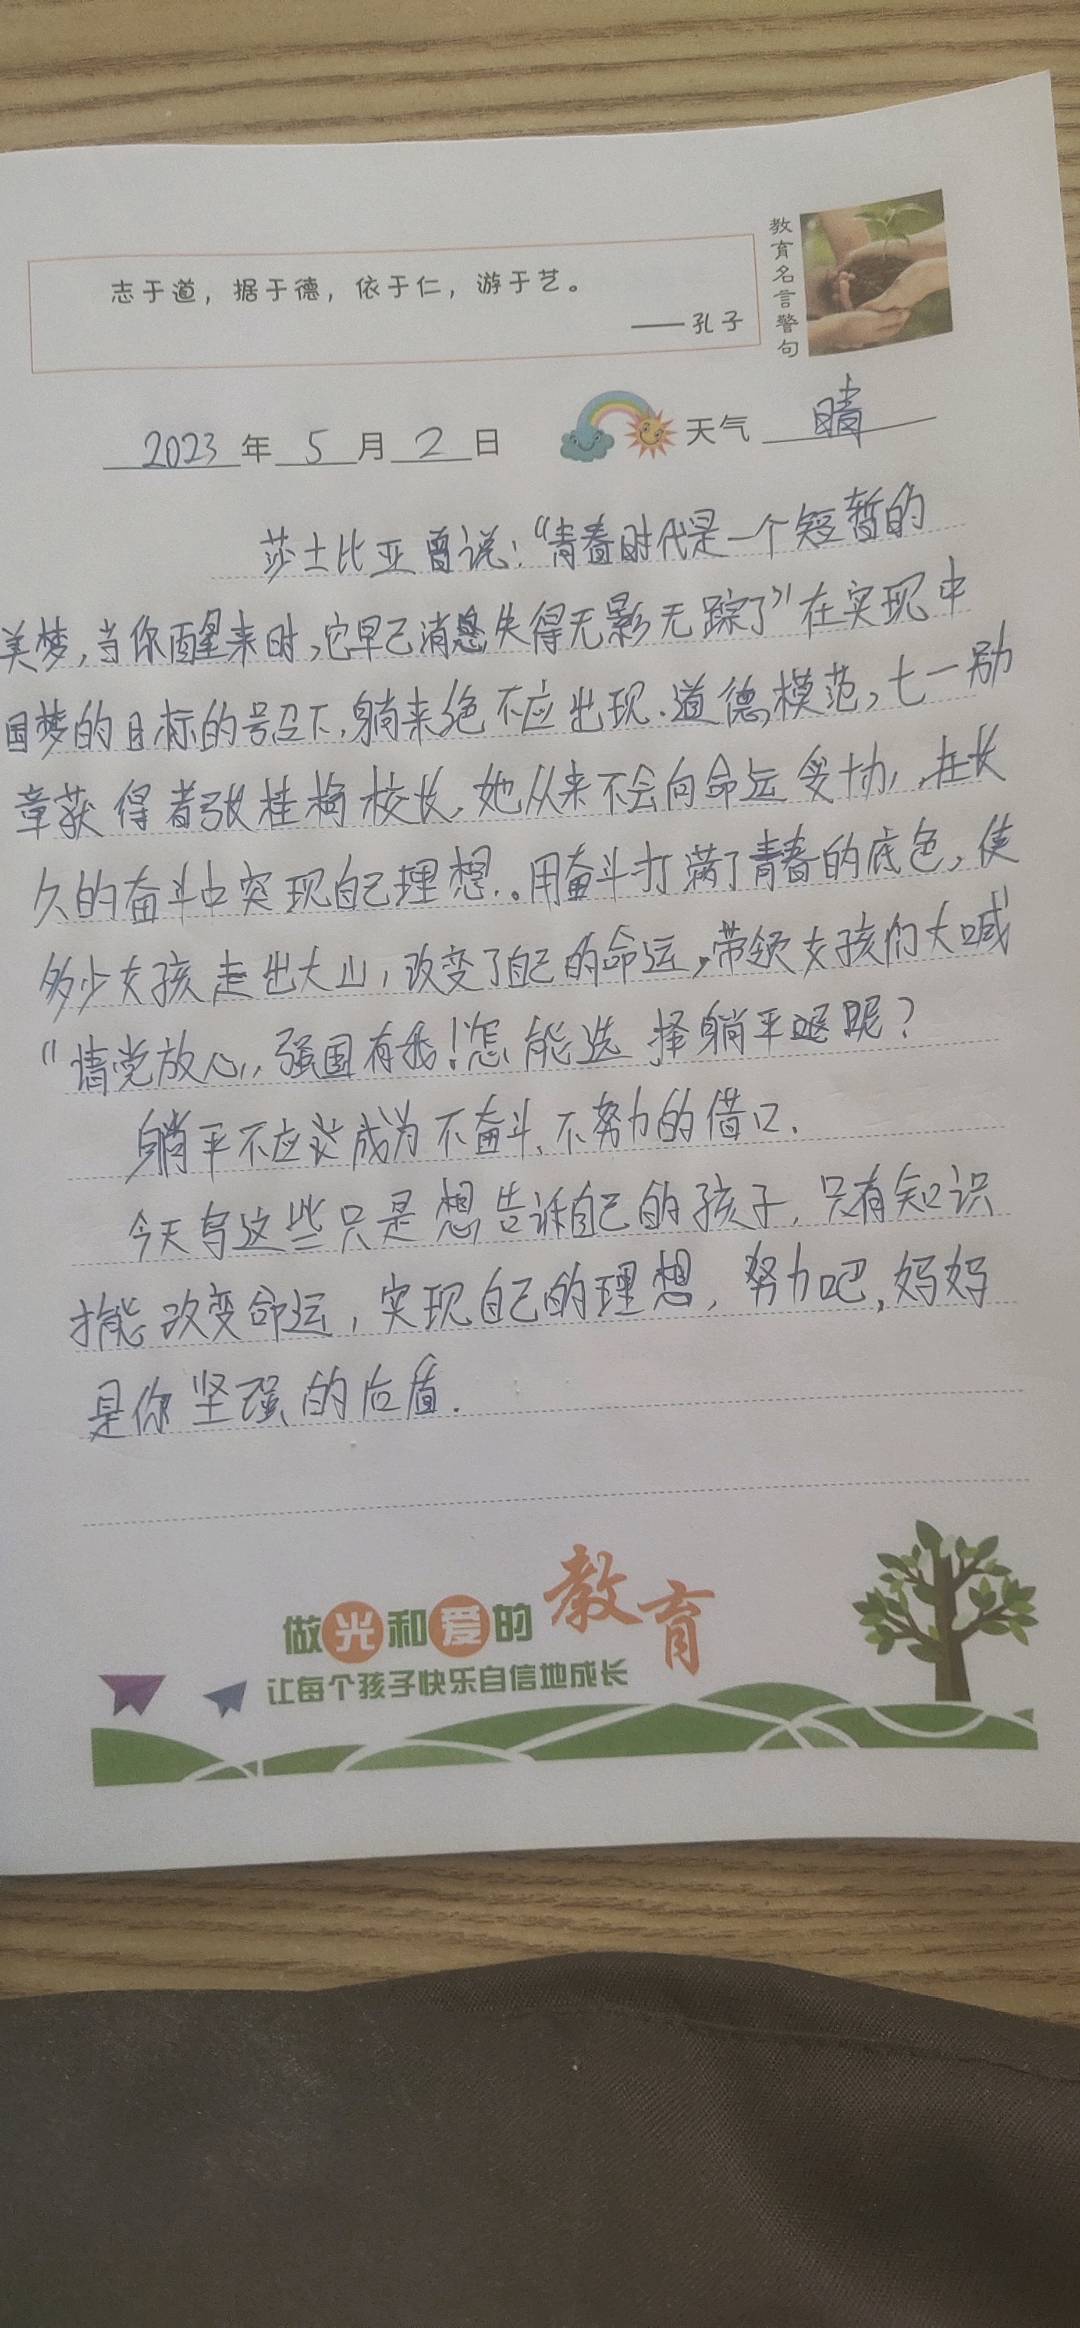 志于道，据于德，依于仁，游于艺。
——孔子
教育名言警句
2023年5月2日 天气 晴
莎士比亚曾说："青春时代是一个短暂的
美梦，当你醒来时，它早已消失得无影无踪了"在实现中
国梦的目标的号召下，躺来绝不应出现.道德模范，七一勋
章获得者张桂梅校长，她从来不会向命运妥协，在长
久的奋斗中实现自己理想.。用奋斗打满了青春的底色，使
多少女孩走出大山，改变了自己的命运，带领女孩们大喊
"请党放心，强国有我！怎能选择躺平呢？
躺平不应该成为不奋斗、不努力的借口.
今天写这些只是想告诉自己的孩子，只有知识
才能改变命运，实现自己的理想，努力吧，妈妈
是你坚强的后盾.
做光和爱的教育
让每个孩子快乐自信地成长